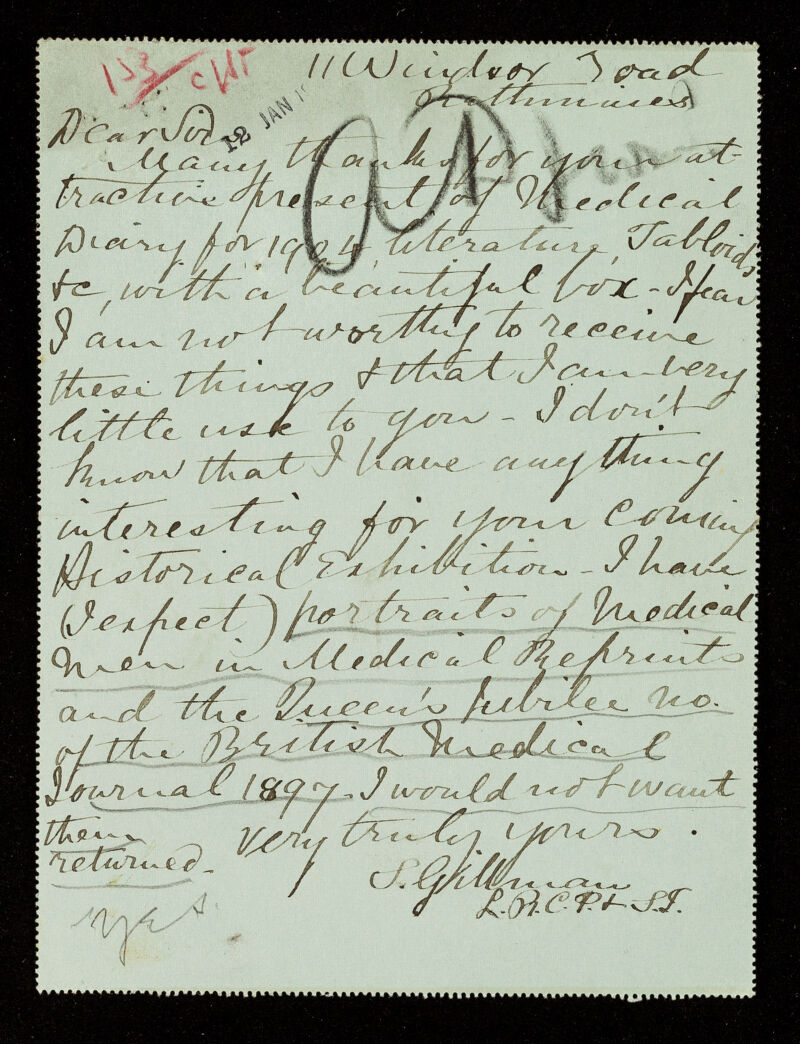 153 CHT
11 Windsor Road
Rathmines
12 JAN 1
Dear Sir
Many thanks for your at-
tractive present of Medical
Diary for 1904, literature, Tabloids
&c, with a beautiful box - I fear
I am not worthy to receive
these things & that I am very
little use to you - I don't
know that I have anything
interesting for your coming
Historical Exhibition - I have
(I expect) portraits of Medical
Men in Medical Reprints
and the Queen's Jubilee no.
of the British Medical
Journal 1897. I would not want
them
returned.
Very truly yours.
S. Gillman
L.R.C.P. & S.I.
Yes.